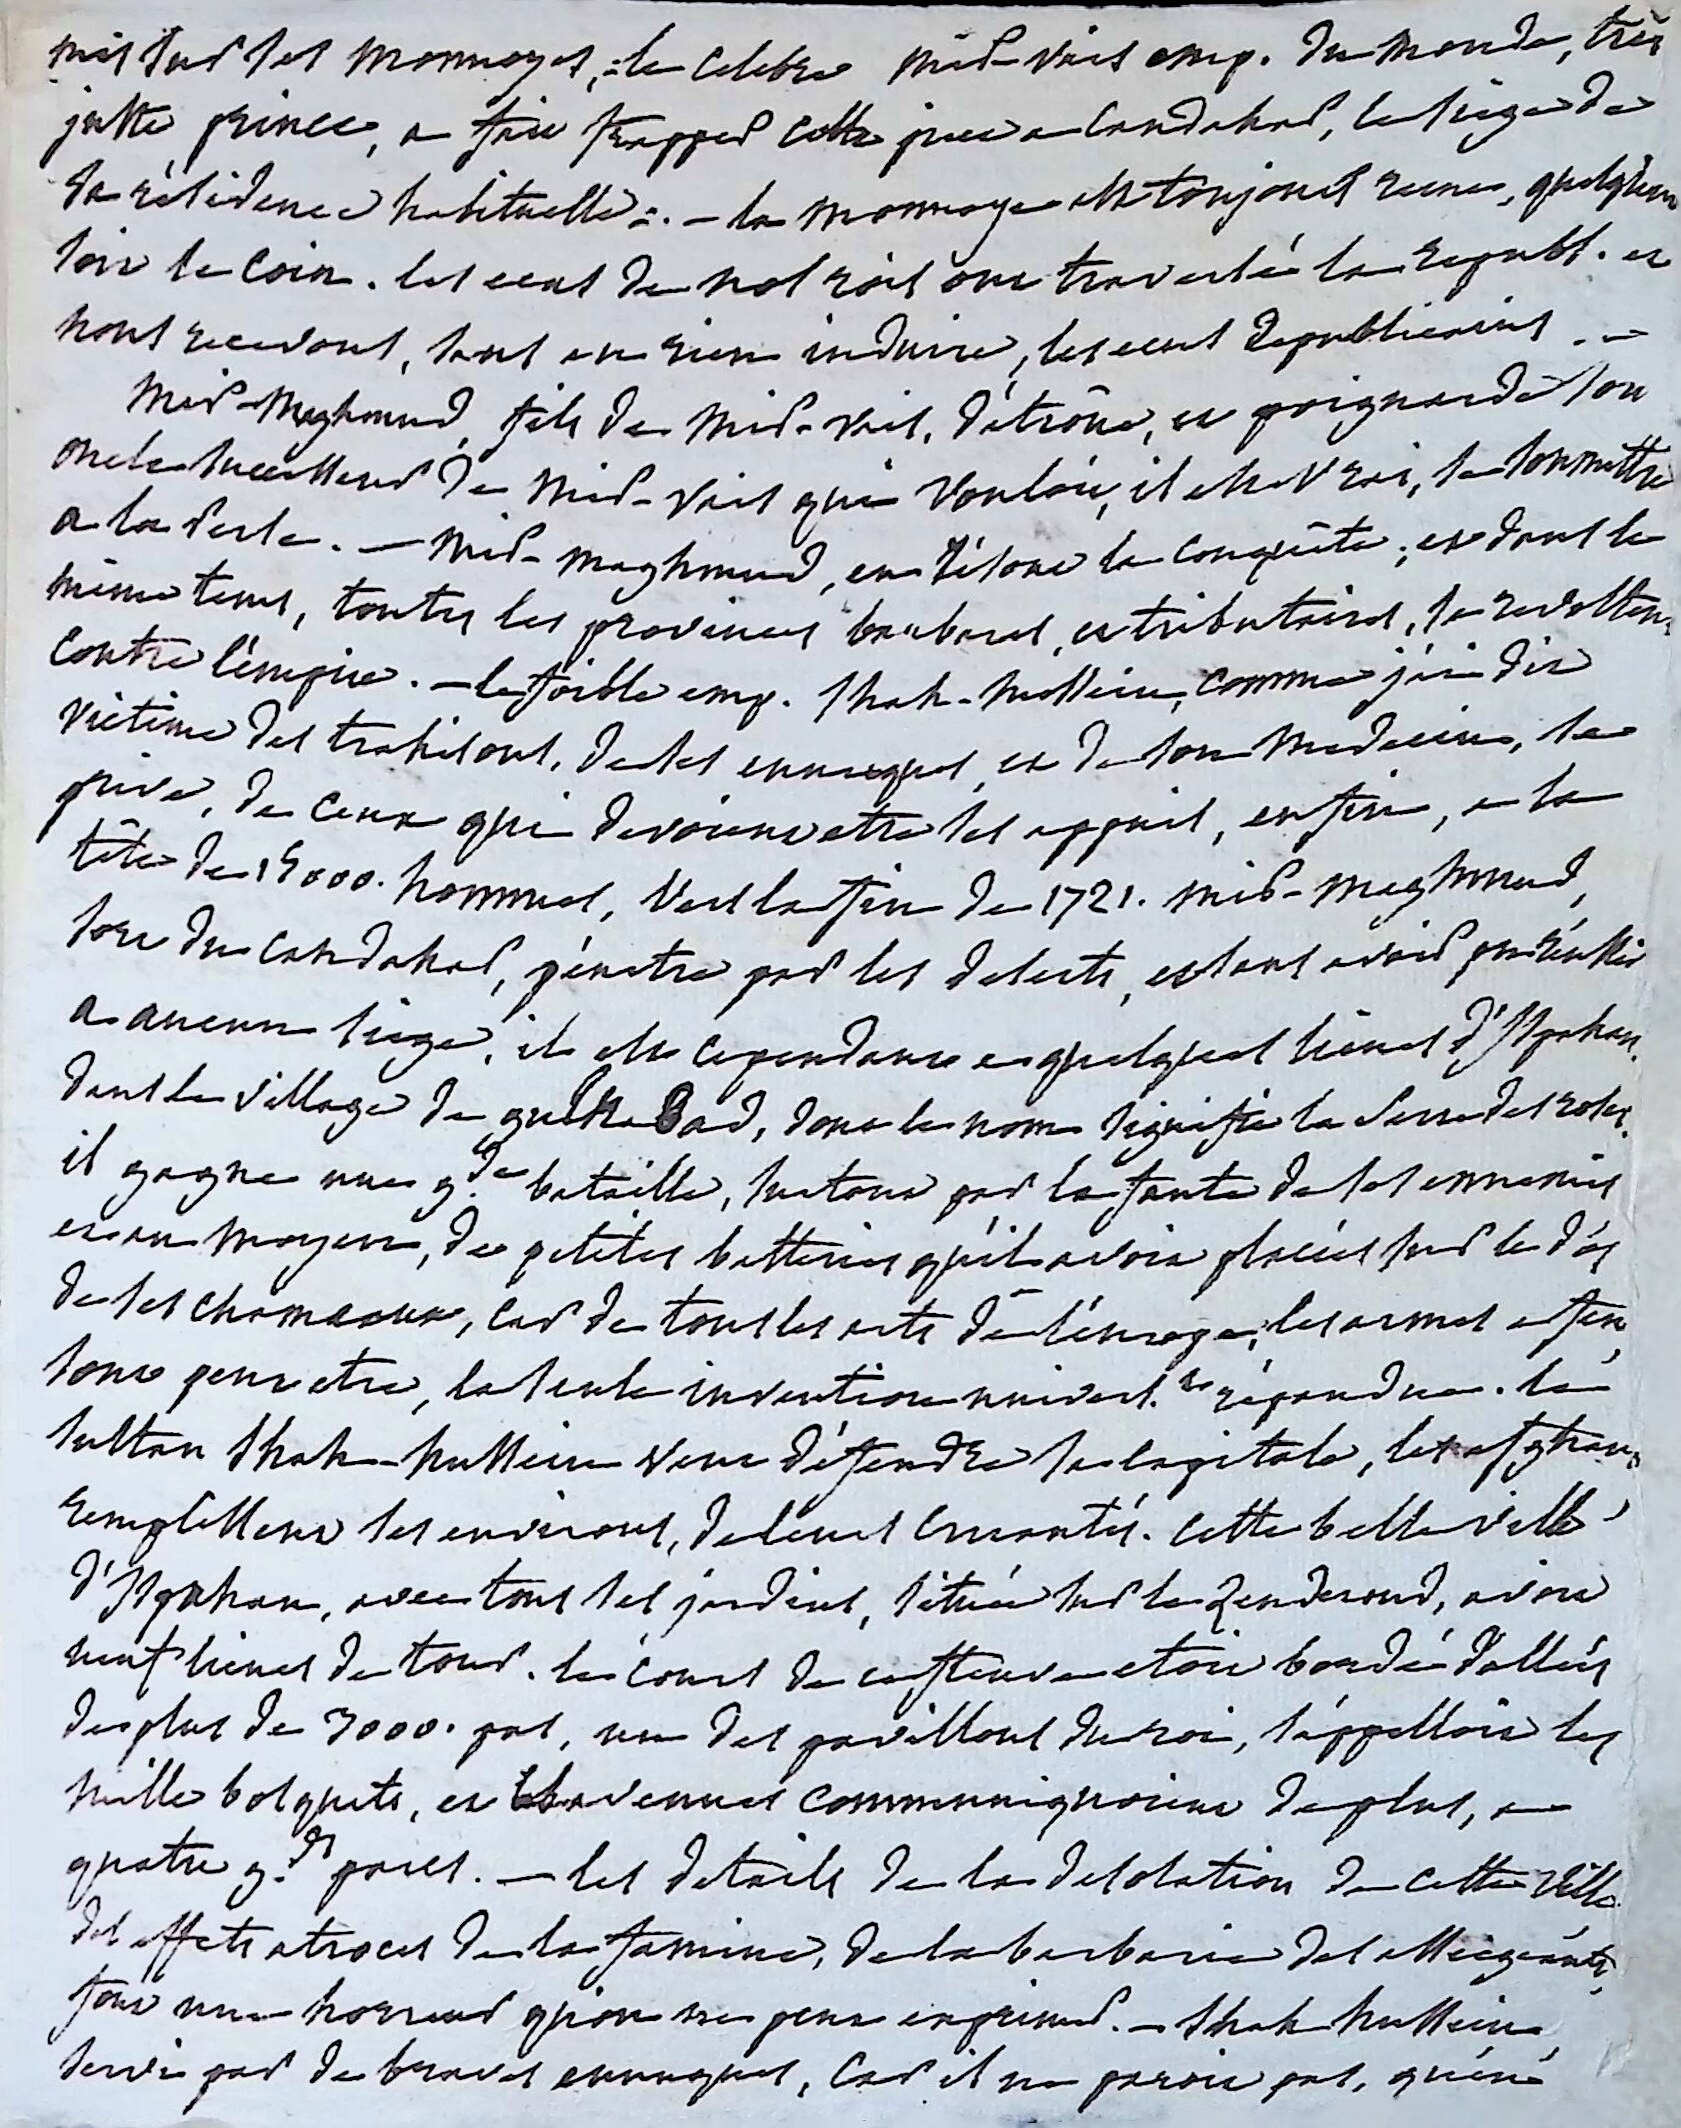 mit sur ses monnoyes, : le celebre mir-vais emp. du monde, très
juste prince, a fait frapper cette piece a Candahar, le siege de
sa résidence habituelle :. – la monnoye est toujours recue, quelqu'en
soit le coin. les ecus de nos rois ont traversée la republ. et
nous recevons, sans en rien induire, les ecus republicains . –
Mir-Maghmud, fils de Mir-vais, détrône, et poignarde son
oncle successeur de Mir-vais qui vouloit, il est vrai, se soumettre
a la Perse. – Mir-maghmud, en résout la conquête ; et dans le
même tems, toutes les provinces barbares, et tributaires, se revoltent
contre l'empire. – le foible emp. Shah-hussein, comme j'ai dit
victime des trahisons, de ses eunuques, et de son medecin, se
prive, de ceux qui devoient etre ses appuis, enfin, a la
tête de 15000. hommes, vers la fin de 1721. mir-maghmud,
sort du Candahar, pénetre par les deserts, et sans avoir pu réussir
a aucun siege, il est cependant a quelques lieues d'Ispahan.
dans le village de gulnaBad, dont le nom signifie la Serre des roses.
il gagne une g.de bataille, surtout par la faute de ses ennemis
et au moyen, de petites batteries qu'il avoit placées sur le dos
de ses chameaux, car de tous les arts de l'europe, les armes a feu,
sont peut etre, la seule invention univers.le répandue. le
sultan Shah-hussein veut défendre sa capitale, les afghans
remplissent les environs, de leurs cruautés. cette belle ville
d'Ispahan, avec tous ses jardins, située sur le Zenderoud, avoit
neuf lieues de tour. le cours de ce fleuve etoit bordé d'allées
de plus de 3000. pas, un des pavillons du roi, s'appelloit les
mille bosquets, et les avenues communiquoient de plus, a
quatre g.ds parcs. – les details de la desolation de cette ville
des effets atroces de la famine, de la barbarie des assiegeants,
font une horreur qu'on ne peut exprimer. – Shah hussein,
servi par de braves eunuques, car il ne paroit pas, qu'en